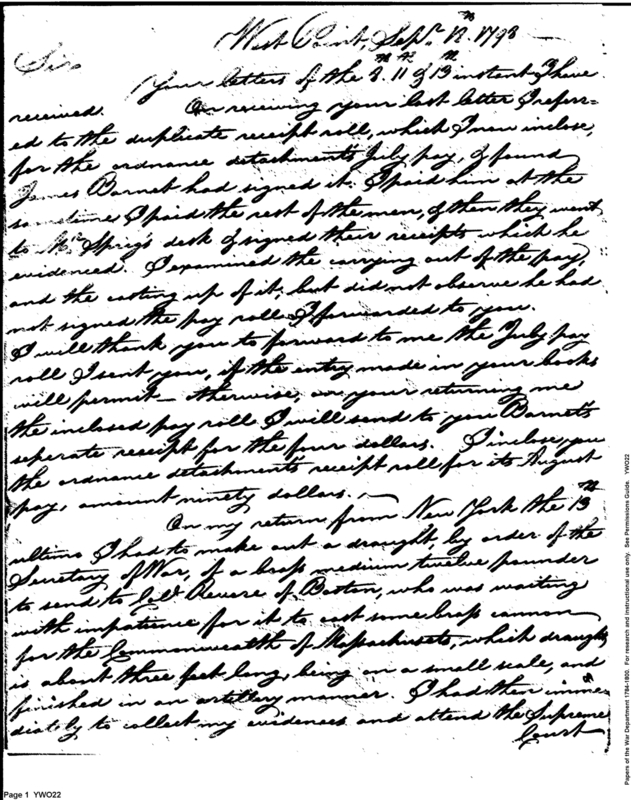 West Point, Sepr. 12th 1798
Sir
Your letters of the 8th 11th & 13th instant I have
received. On receiving your last letter I referr=
ed to the duplicate receipt roll, which I now inclose,
for the ordnance detachments July pay, & found
James Barnet had signed it. I paid him at the
same time I paid the rest of the men, & then they went
to Mr. Sprig's desk & signed their receipts which he
evidenced. I examined the carrying out of the pay,
and the casting up of it, but did not observe he had
not signed the pay roll I forwarded to you.
I will thank you to forward to me the July pay
roll I sent you, if the entry made in your books
will permit — otherwise, on your returning me
the inclosed pay roll I will send to you Barnet's
seperate receipt for the four dollars. I inclose you
the ordnance detachment's receipt roll for its August
pay, amount ninety dollars. —
On my return from New York the 13th
ultimo I had to make out a draught by order of the
Secretary of War, of a brass medium twelve pounder
to send to Revere of Boston, who was waiting
with impatience for it to cast some brass cannon
for the Commonwealth of Massachusets, which draught
is about three feet long, being on a small scale, and
finished in an artillery manner. I had then imme=
diately to collect my evidences and attend the Supreme
Court
Page 1 YWO22
Papers of the War Department 1784-1800. For research and instructional use only. See Permissions Guide. YWO22